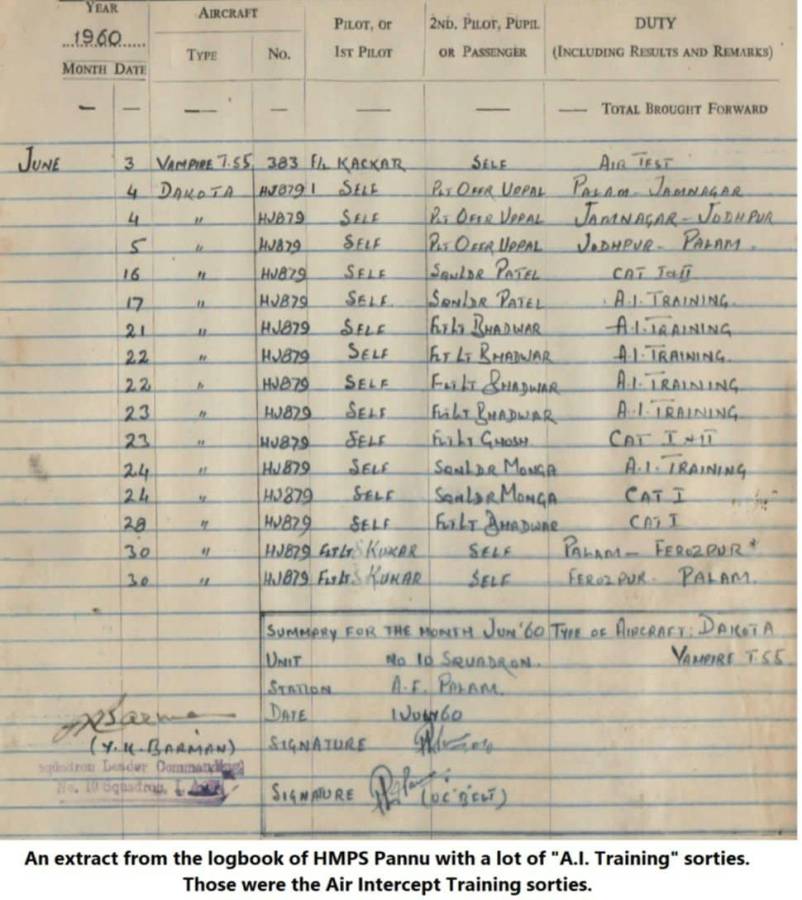 YEAR
1960
MONTH DATE
AIRCRAFT
TYPE No.
PILOT, OR
1ST PILOT
2ND. PILOT, PUPIL
OR PASSENGER
DUTY
(INCLUDING RESULTS AND REMARKS)
— — — — — — — TOTAL BROUGHT FORWARD
JUNE 3 VAMPIRE T.55 383 F/L KACKAR SELF AIR TEST
4 DAKOTA HJ879 SELF PLT OFFR UPPAL PALAM-JAMNAGAR
4 " HJ879 SELF PLT OFFR UPPAL JAMNAGAR-JODHPUR
5 " HJ879 SELF PLT OFFR UPPAL JODHPUR-PALAM.
16 " HJ879 SELF SQNLDR PATEL CAT I & II
17 " HJ879 SELF SQNLDR PATEL A.I. TRAINING
21 " HJ879 SELF FLT LT BHADWAR A.I. TRAINING
22 " HJ879 SELF FLT LT BHADWAR A.I. TRAINING.
22 " HJ879 SELF FLT LT BHADWAR A.I. TRAINING
23 " HJ879 SELF FLT LT BHADWAR A.I. TRAINING
23 " HJ879 SELF FLT LT GHOSH CAT I & II
24 " HJ879 SELF SQNLDR MONGA A.I. TRAINING
24 " HJ879 SELF SQNLDR MONGA CAT I
28 " HJ879 SELF FLT LT BHADWAR CAT I
30 " HJ879 FLT LT. S KUKAR SELF PALAM-FEROZPUR*
30 " HJ879 FLT LT. S KUKAR SELF FEROZPUR-PALAM.
SUMMARY FOR THE MONTH JUN'60 TYPE OF AIRCRAFT: DAKOTA
UNIT No 10 SQUADRON. VAMPIRE T.55
STATION A.F. PALAM.
DATE 1 JULY 60
SIGNATURE
(Y.K. BARMAN)
Squadron Leader Commanding
No. 10 Squadron,
SIGNATURE
An extract from the logbook of HMPS Pannu with a lot of "A.I. Training" sorties.
Those were the Air Intercept Training sorties.